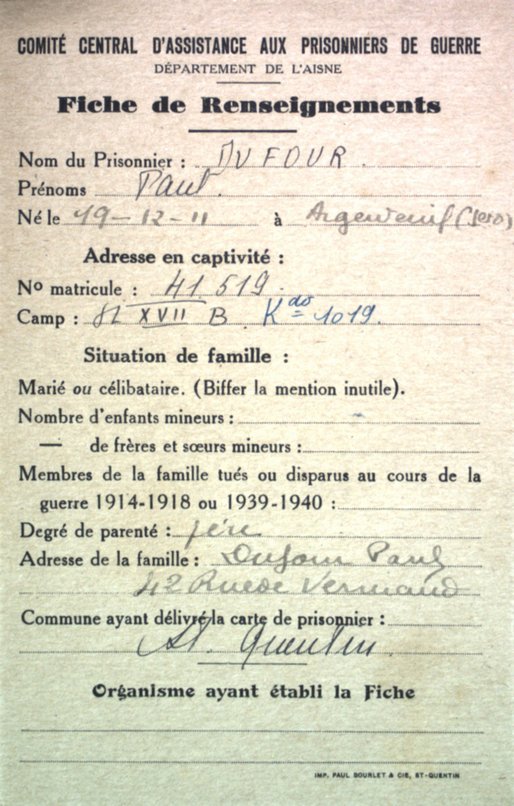 COMITÉ CENTRAL D'ASSISTANCE AUX PRISONNIERS DE GUERRE
DÉPARTEMENT DE L'AISNE
Fiche de Renseignements
Nom du Prisonnier : DUFOUR.
Prénoms Paul
Né le 19-12-11 à Argenteuil
Adresse en captivité :
No matricule : 41 519
Camp : XVII B Kdo 1019.
Situation de famille :
Marié ou célibataire. (Biffer la mention inutile).
Nombre d'enfants mineurs :
— de frères et sœurs mineurs :
Membres de la famille tués ou disparus au cours de la
guerre 1914-1918 ou 1939-1940 :
Degré de parenté : père
Adresse de la famille : Dufour Paul
42 Rue de Vermand
Commune ayant délivré la carte de prisonnier :
St. Quentin.
Organisme ayant établi la Fiche
IMP. PAUL BOURLET & CIE, ST-QUENTIN